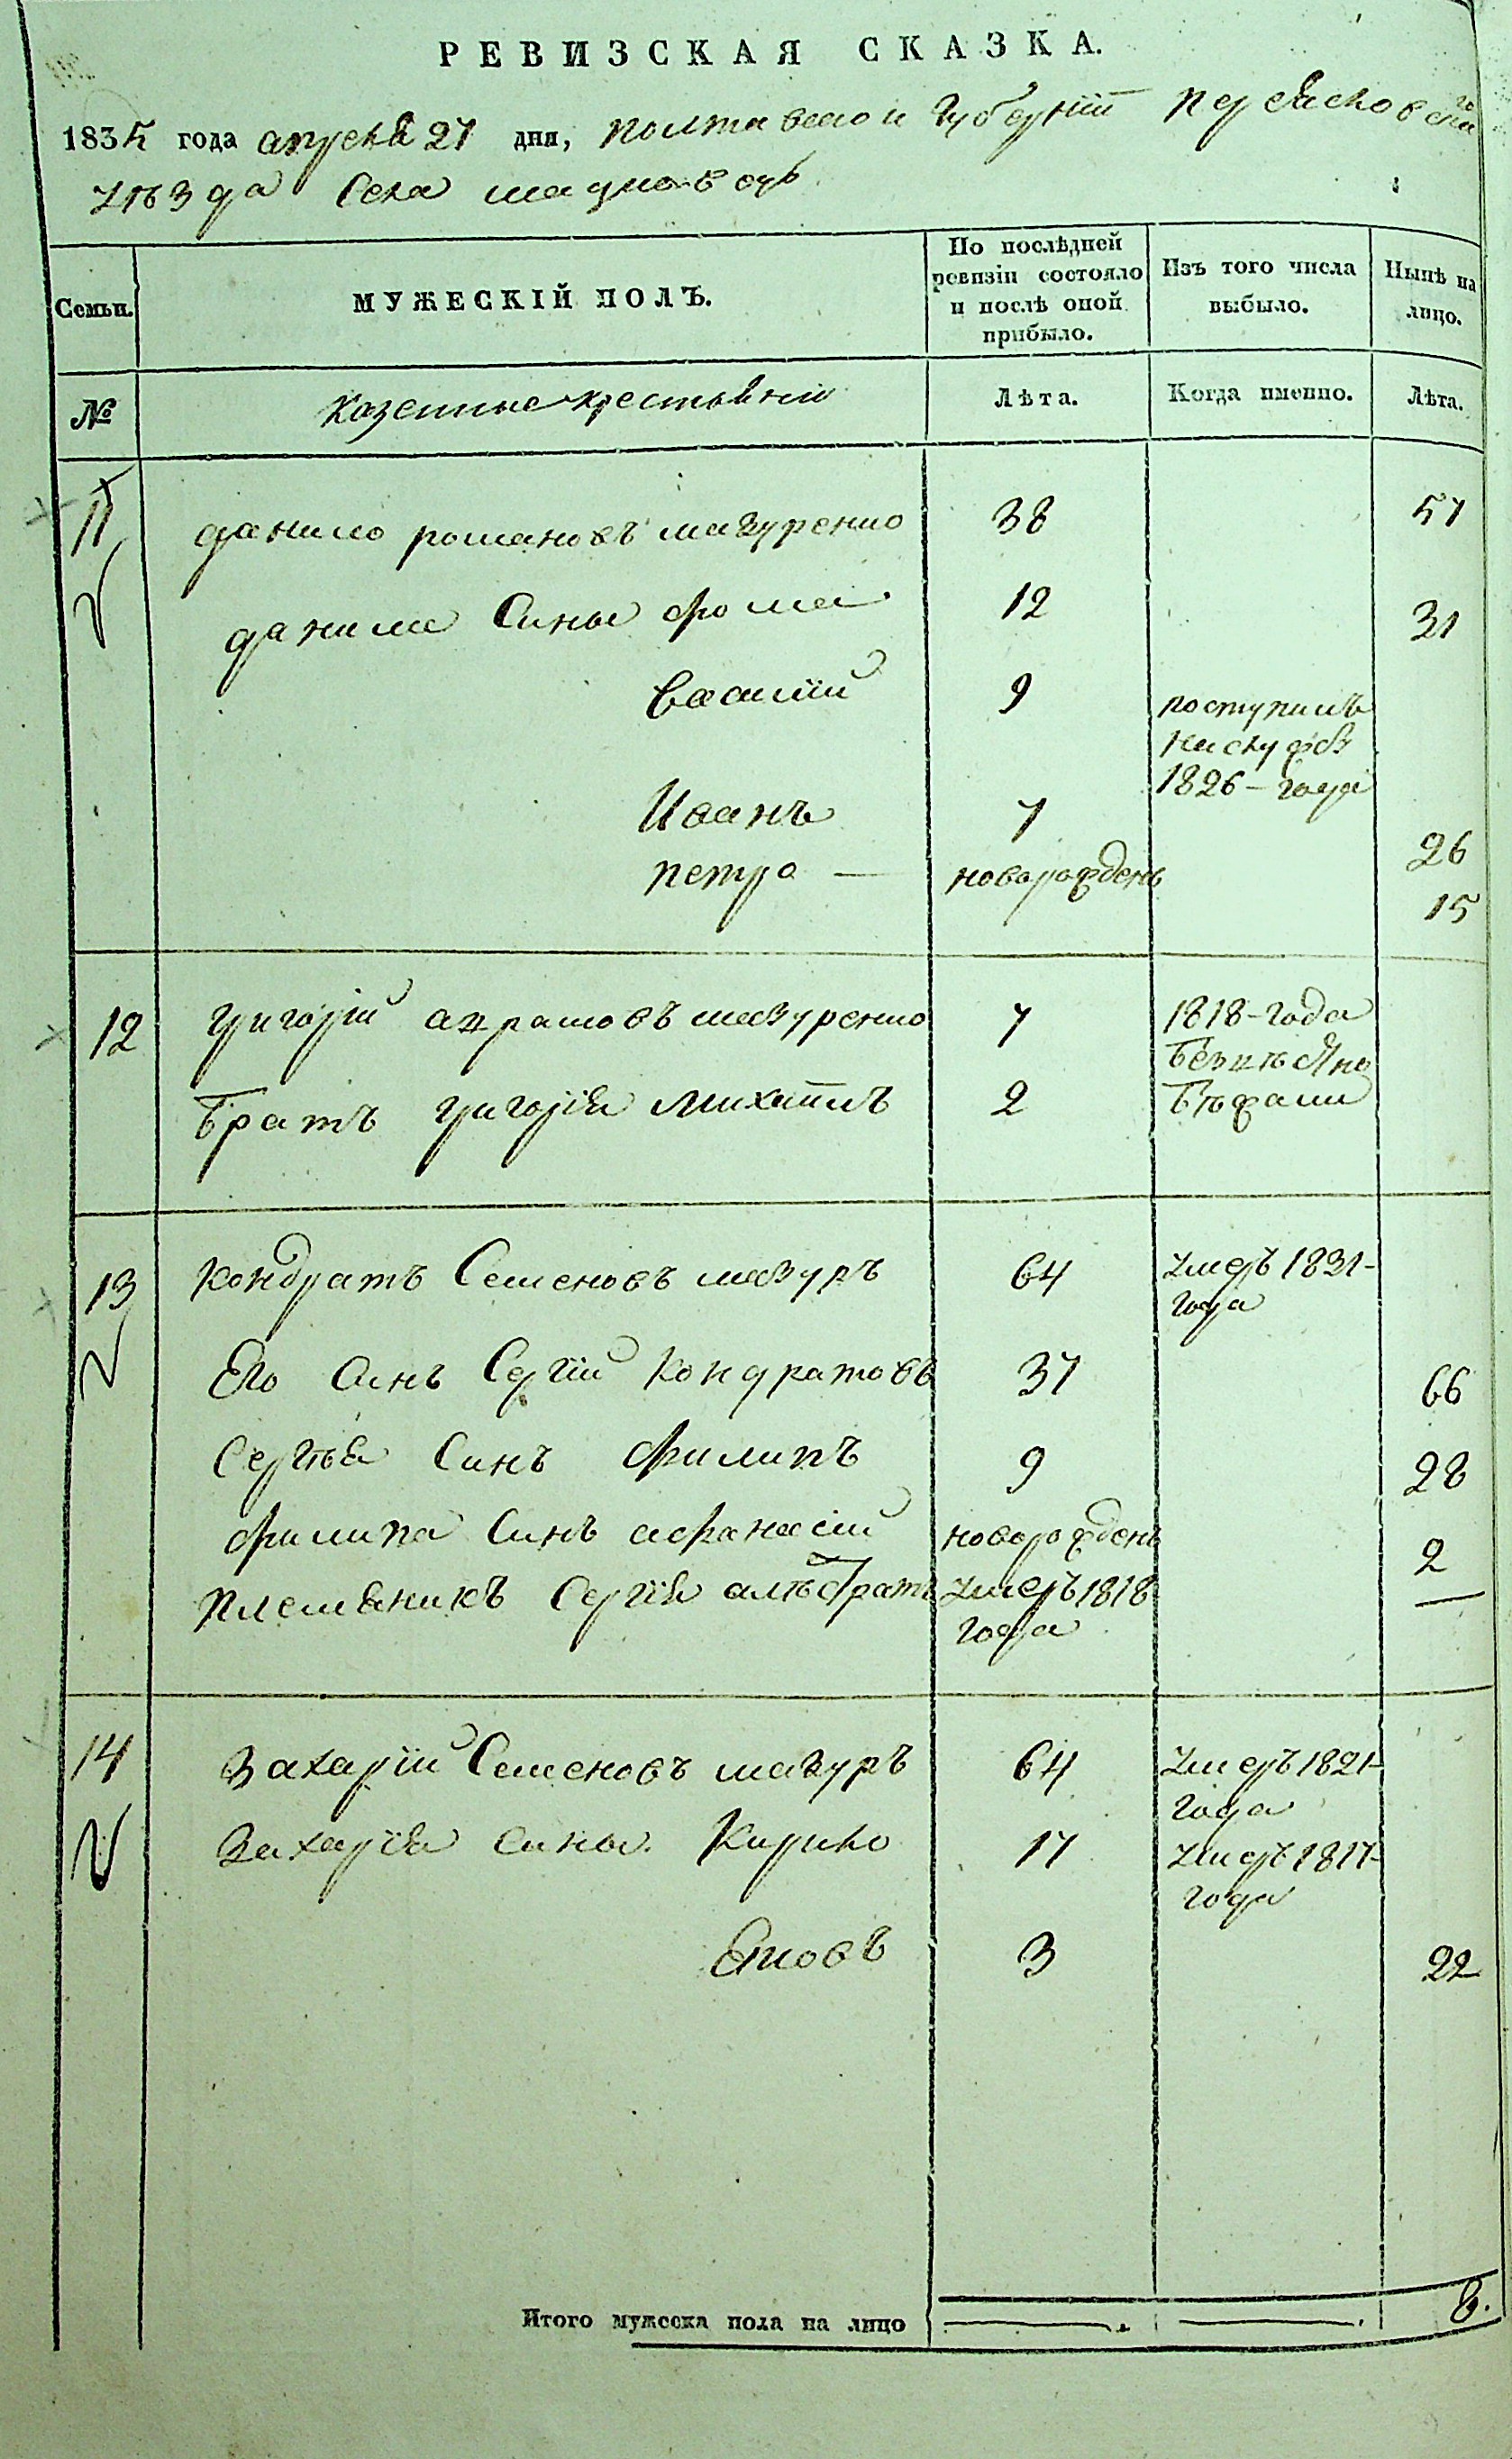 РЕВИЗСКАЯ СКАЗКА.
1835 года апреля 27 дня, полтавской Губернїи переясковскаго
уѣзда Села
Семьи.
МУЖЕСКІЙ ПОЛЪ.
По послѣдней
ревизіи состояло
и послѣ оной
прибыло.
Изъ того числа
выбыло.
Нынѣ на
лицо.
№
казенные крестьяни
Лѣта.
Когда именно.
Лѣта.
11 данило романовъ мазуренко 38 57
данила Сины фома 12 31
василїй 9 поступилъ
1826-года
Иванъ 7 26
петро — новорожденъ 15
12 григорїй мазуренко 7 1818-года
братъ григорїя михаилъ 2 бежали
13 кондратъ Семеновъ мазуръ 64 умеръ 1831-
года
Его Синъ Сергїй Кондратовъ 37 66
Сергѣя Синъ филипъ 9 28
филипа Синъ афанасїй новорожденъ 2
племяникъ Сергїя умеръ 1818
года
14 Захарїй Семеновъ мазуръ 64 умеръ 1821-
года
Захарїя Сины Кирило 17 умеръ 1817-
года
Яковъ 3 22
Итого мужеска пола на лицо 8.